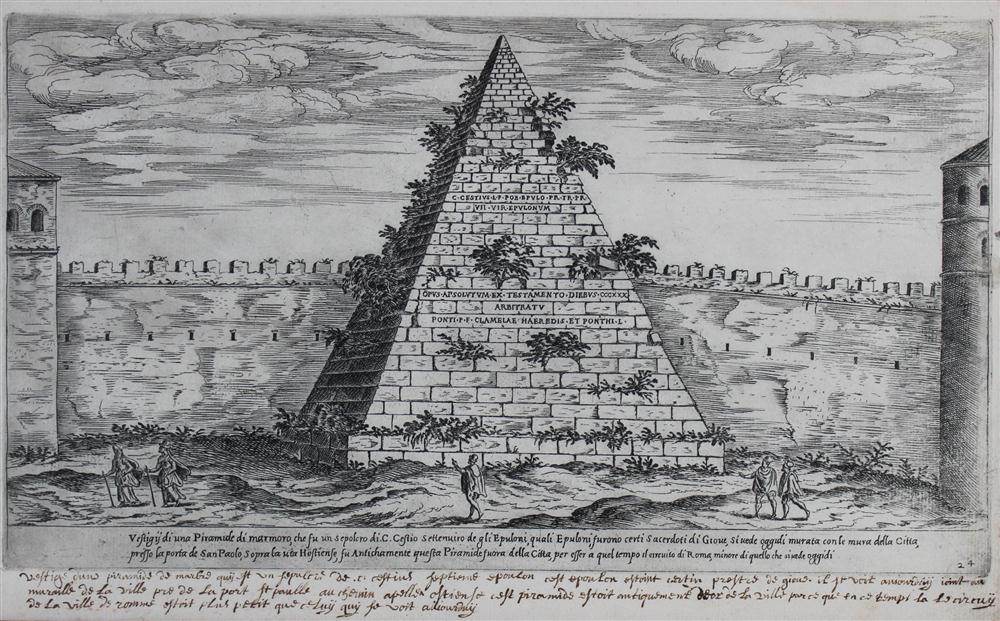 C·CESTIVS·L·F·POB·EPVLO·PR·TR·PR
VII·VIR·EPVLONVM
OPVS·APSOLVTVM·EX·TESTAMENTO·DIEBVS·CCCXXX
ARBITRATV
PONTI·P·F·CLAMELAE HAEREDIS·ET·PONTHI·L·
Vestigij di una Piramide di marmoro, che fu un sepolcro di C. Cestio Settenuiro de gli Epuloni, quali Epuloni furono certi Sacerdoti di Gioue, si vede oggidi murata con le mura della Citta,
presso la porta de San Paolo, sopra la uia Hostiense, fu Antichamente questa Piramide fuora della Citta, per esser a quel tempo il circuito di Roma, minore di quello che si vede oggidi
24
vestige dune piramide de marbre quy est un sepulcre de .c. cestius septieme epoulon cest epoulon estoint certin prestre de gioue il se voit auiourduy ioint au
muraille de la ville pre de la port st paulle au chemin apelles ostiense cest piramide estoit antiquement de la ville parce que en ce temps la le circuy
de la ville de romme estoit plus petit que celuy quy se voit auiourduy